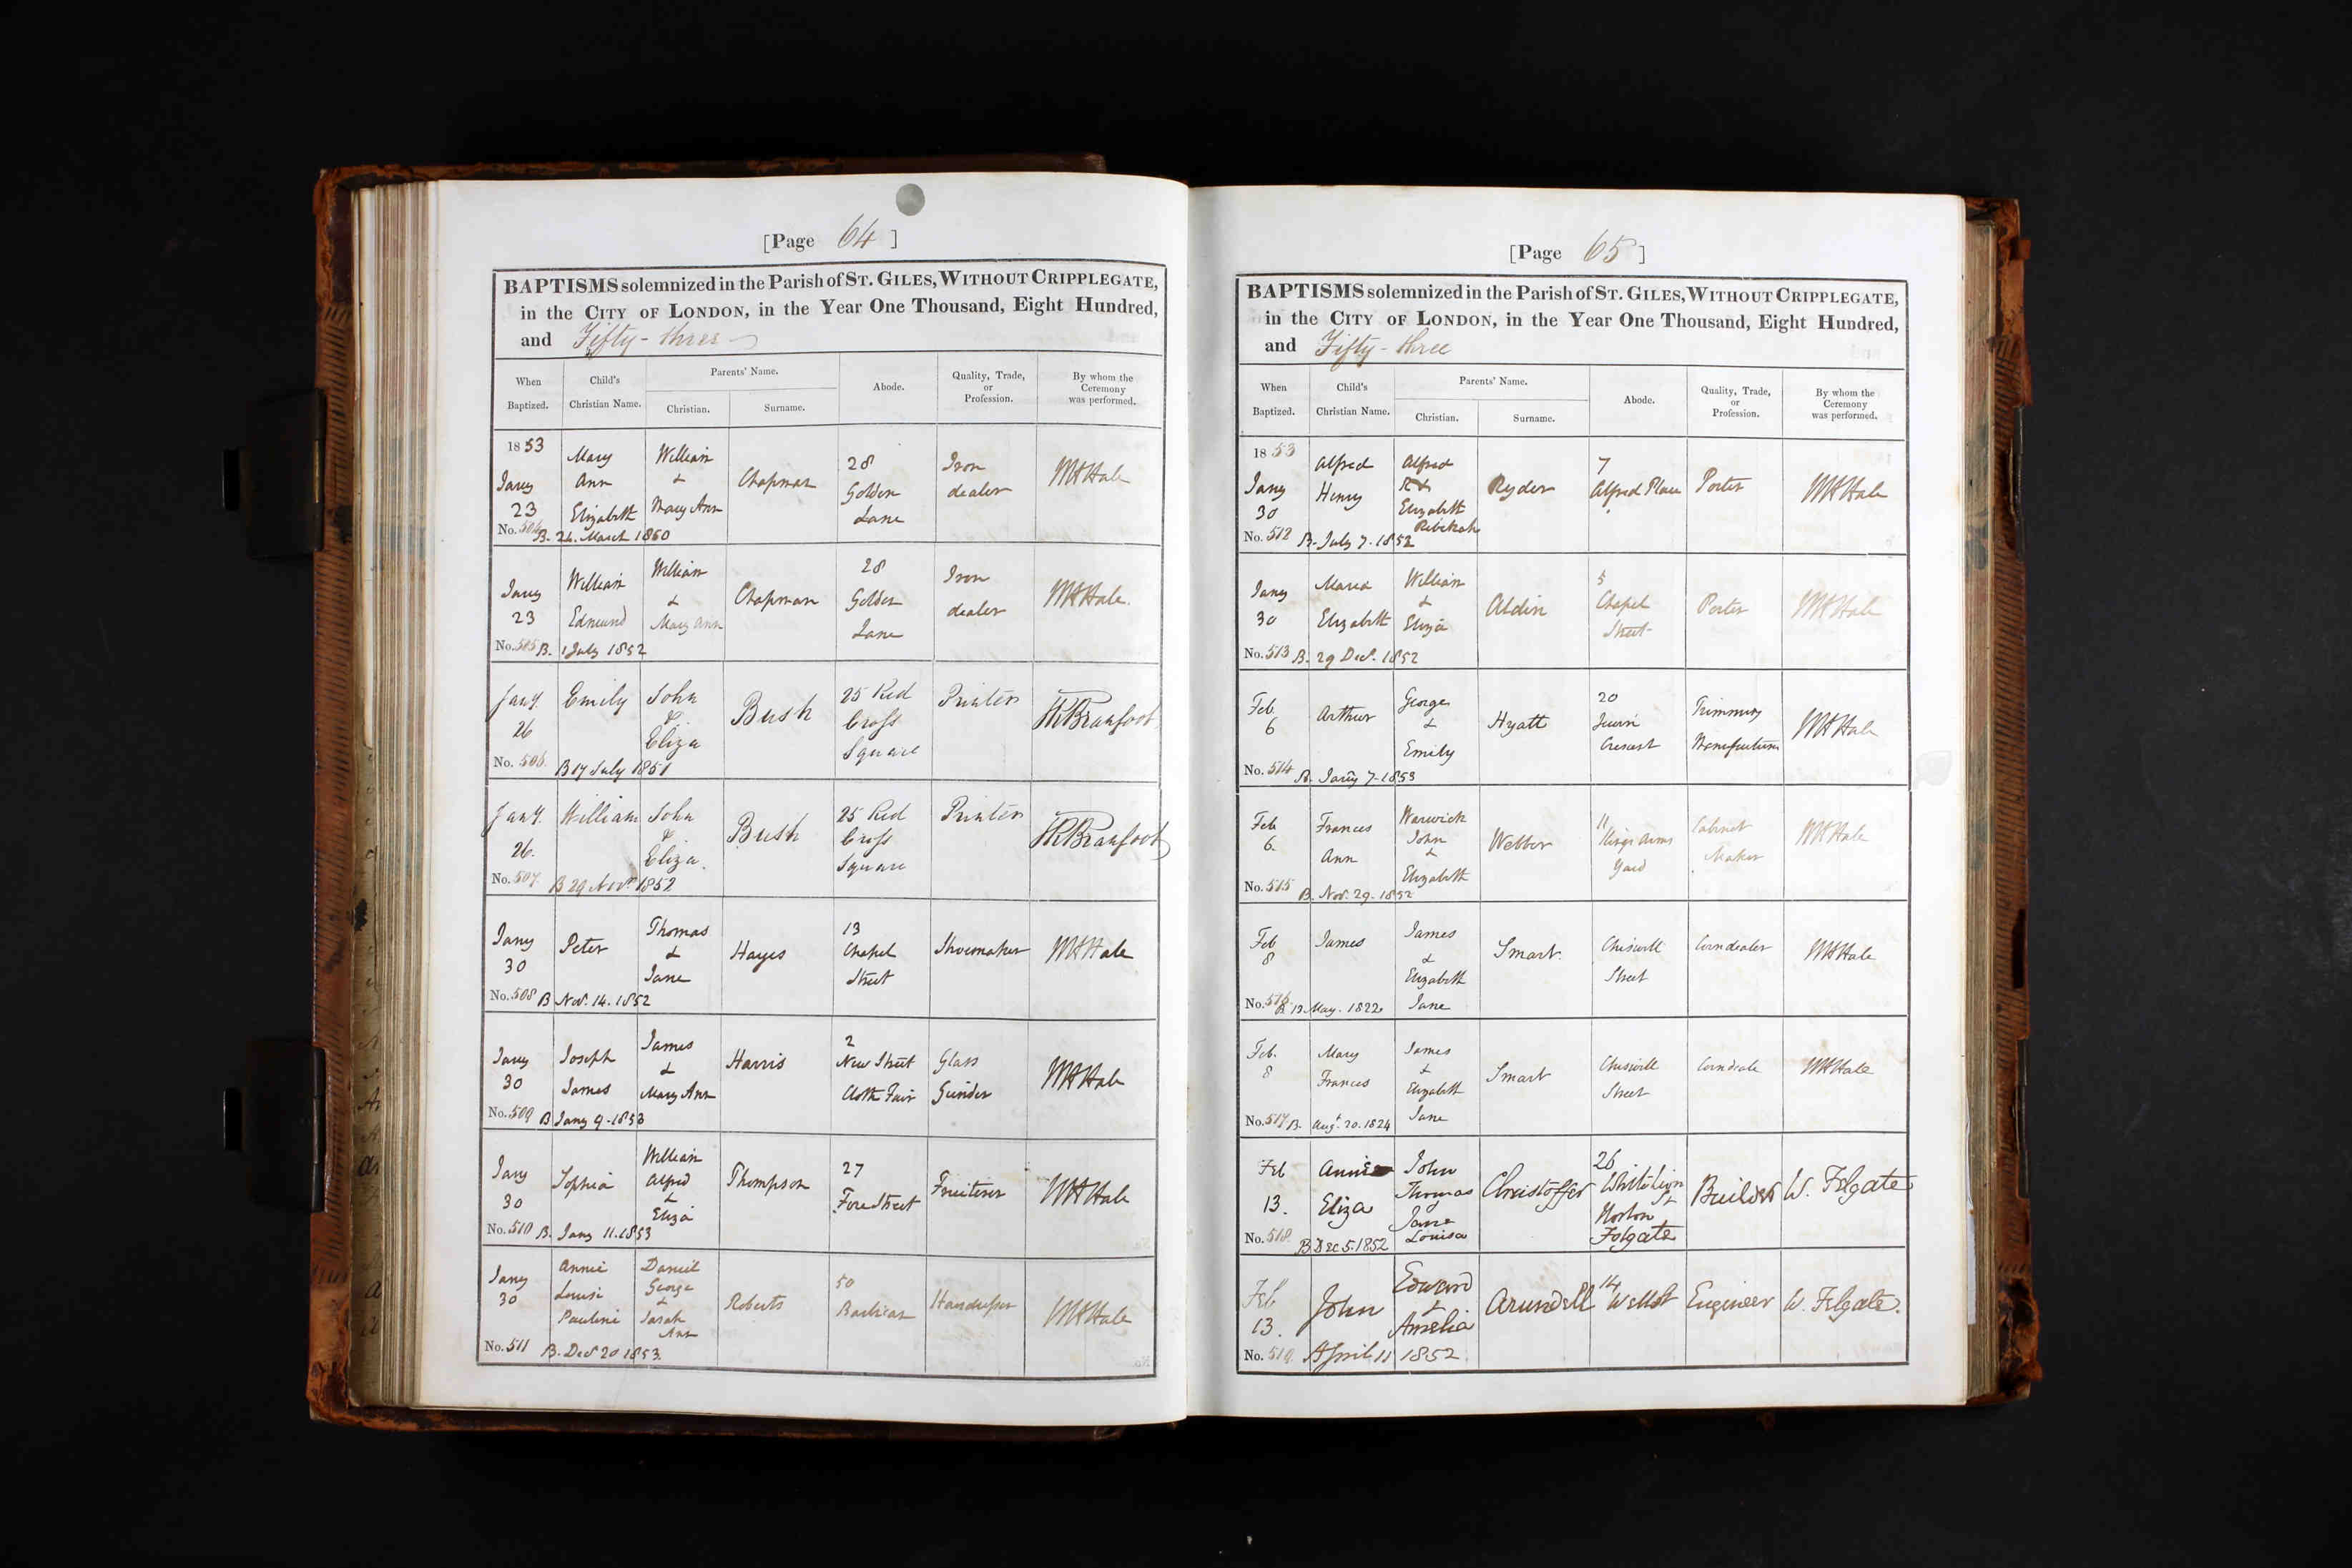 [Page 64 ]
BAPTISMS solemnized in the Parish of ST. GILES, WITHOUT CRIPPLEGATE,
in the CITY OF LONDON, in the Year One Thousand, Eight Hundred,
and Fifty-three
When Baptized. Child's Christian Name. Parents' Name. Christian. Surname. Abode. Quality, Trade, or Profession. By whom the Ceremony was performed.
1853 Jany 23 Mary Ann Elizabeth William & Mary Ann Chapman 28 Golden Lane Iron dealer WHHale
No. 504 B. 26. March 1850
Jany 23 William Edmund William & Mary Ann Chapman 28 Golden Lane Iron dealer WHHale.
No. 505 B. 1 July 1852
Jany. 26 Emily John & Eliza Bush 25 Red Cross Square Printer
No. 506. B 17 July 1851
Jany. 26. William John & Eliza. Bush 25 Red Cross Square Printer
No. 507. B 29 Novr 1852
Jany 30 Peter Thomas & Jane Hayes 13 Chapel Street Shoemaker WHHale
No. 508 B Nov. 14. 1852
Jany 30 Joseph James James & Mary Ann Harris 2 New Street Cloth Fair Glass Grinder WHHale
No. 509 B Jany 9-1853
Jany 30 Sophia William Alfred & Eliza Thompson 27 Fore Street Fruiterer WHHale
No. 510 B. Jany 11.1853
Jany 30 Annie Louise Pauline Daniel George & Sarah Ann Roberts 50 Barbican Hairdresser WHHale
No. 511 B. Decr 20 1853.
[Page 65 ]
BAPTISMS solemnized in the Parish of ST. GILES, WITHOUT CRIPPLEGATE,
in the CITY OF LONDON, in the Year One Thousand, Eight Hundred,
and Fifty-three
When Baptized. Child's Christian Name. Parents' Name. Christian. Surname. Abode. Quality, Trade, or Profession. By whom the Ceremony was performed.
1853 Jany 30 Alfred Henry Alfred & Elizabeth Rebekah Ryder 7 Alfred Place Porter WHHale
No. 512 B. July 7. 1852
Jany 30 Maria Elizabeth William & Eliza Aldin 5 Chapel Street Porter WHHale
No. 513 B. 29 Decr. 1852
Feb 6 Arthur George & Emily Hyatt 20 Jewin Crescent Trimming Manufacturer WHHale
No. 514 B. Jany 7-1853
Feb 6 Frances Ann Warwick John & Elizabeth Webber 11 Kings Arms Yard Cabinet Maker WHHale
No. 515 B. Nov. 29. 1852
Feb 8 James James & Elizabeth Jane Smart Chiswell Street Corndealer WHHale
No. 516. B 12. May. 1822
Feb. 8 Mary Frances James & Elizabeth Jane Smart Chiswell Street WHHale
No. 517 B. Augt. 20. 1824
Feb 13. Annie Eliza John Thomas Jane Louisa Christoffer 26 White Lion St Norton Folgate Builder W. Felgate
No. 518. B Dec 5.1852
Feb 13. John Edward & Amelia Arundell 14 Well St Engineer W. Felgate.
No. 519. April 11 1852.